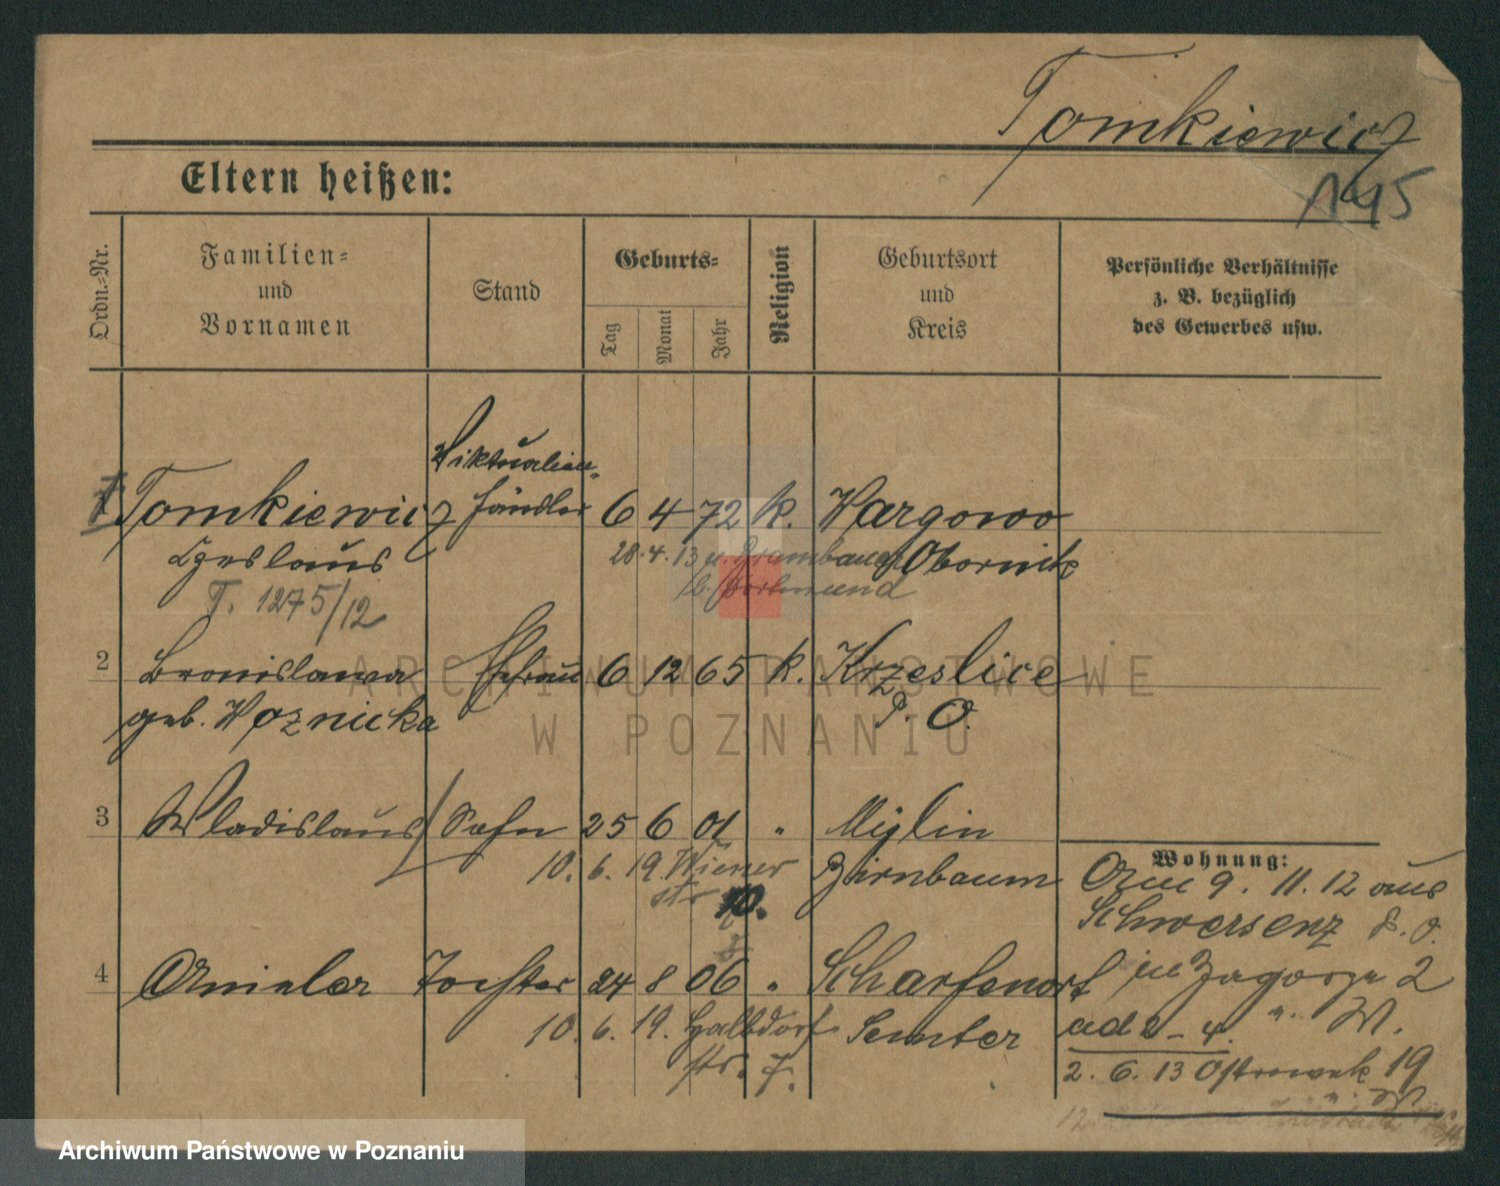 Tomkiewicz
145
Eltern heißen:
Ordn.-Nr.
Familien-
und
Vornamen
Stand
Geburts-
Tag
Monat
Jahr
Religion
Geburtsort
und
Kreis
Persönliche Verhältnisse
z. B. bezüglich
des Gewerbes usw.
1 Tomkiewicz Viktualien-
händler 6 4 72 k. Wargowo
Czeslaus 28.4.13 n. Brambauer Obornik
T. 1275/12 b. Dortmund
2 Bronislawa Ehefrau 6 12 65 k. Krzeslice
geb. Woznicka P. O.
3 Wladislaus Sohn 25 6 01 " Mylin
10. 6. 19. Wiener Birnbaum
str 10.
4 Aniela Tochter 24 8 06 " Scharfenort
10. 6. 19. Halbdorf Samter
str. 7.
Wohnung:
Am 9. 11. 12 aus
Schwersenz P. O.
in Zagorze 2
ad 2-4. n. W.
2. 6. 13 Ostrowek 19
n. W.
ARCHIWUM PAŃSTWOWE
W POZNANIU
Archiwum Państwowe w Poznaniu